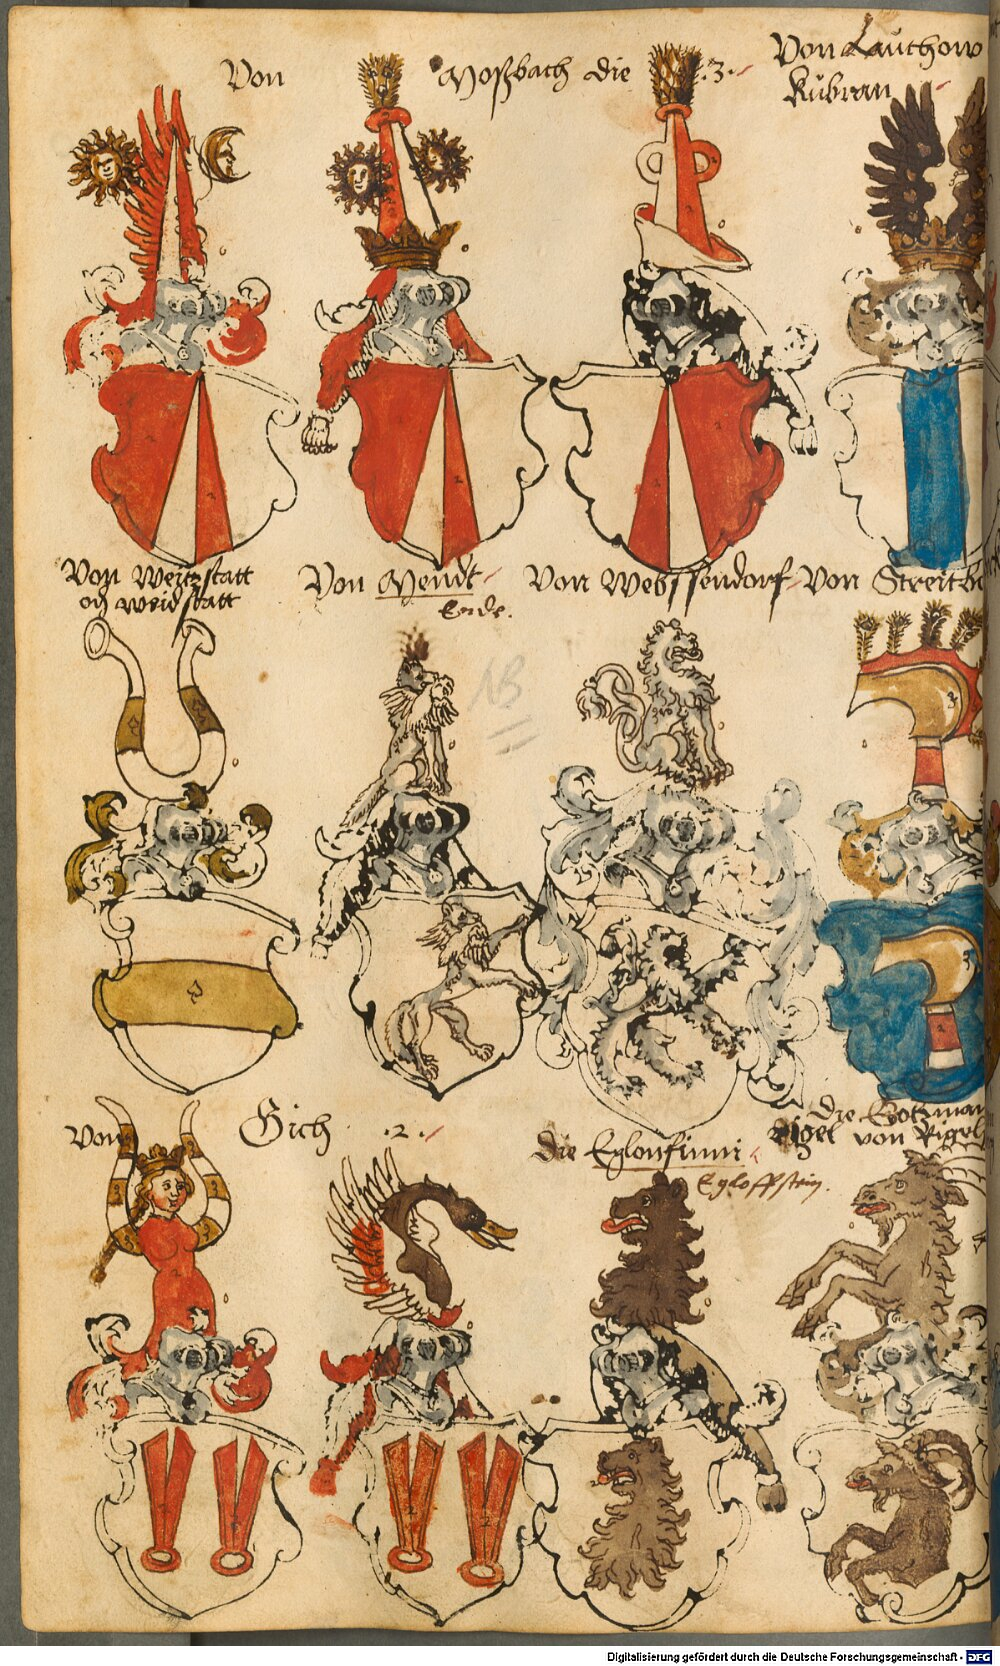 Von Moßbach die .3.
Von Lauchow
Kübran
Von Weitzstatt
oder Weidstatt
Von Mendt
Ende.
Von Webssendorf
Von Streitbe
NB
Von Gich .2.
die Eglonfinni
Egloffstein.
die Gotzman
Rigel von Rigel
Digitalisierung gefördert durch die Deutsche Forschungsgemeinschaft - DFG